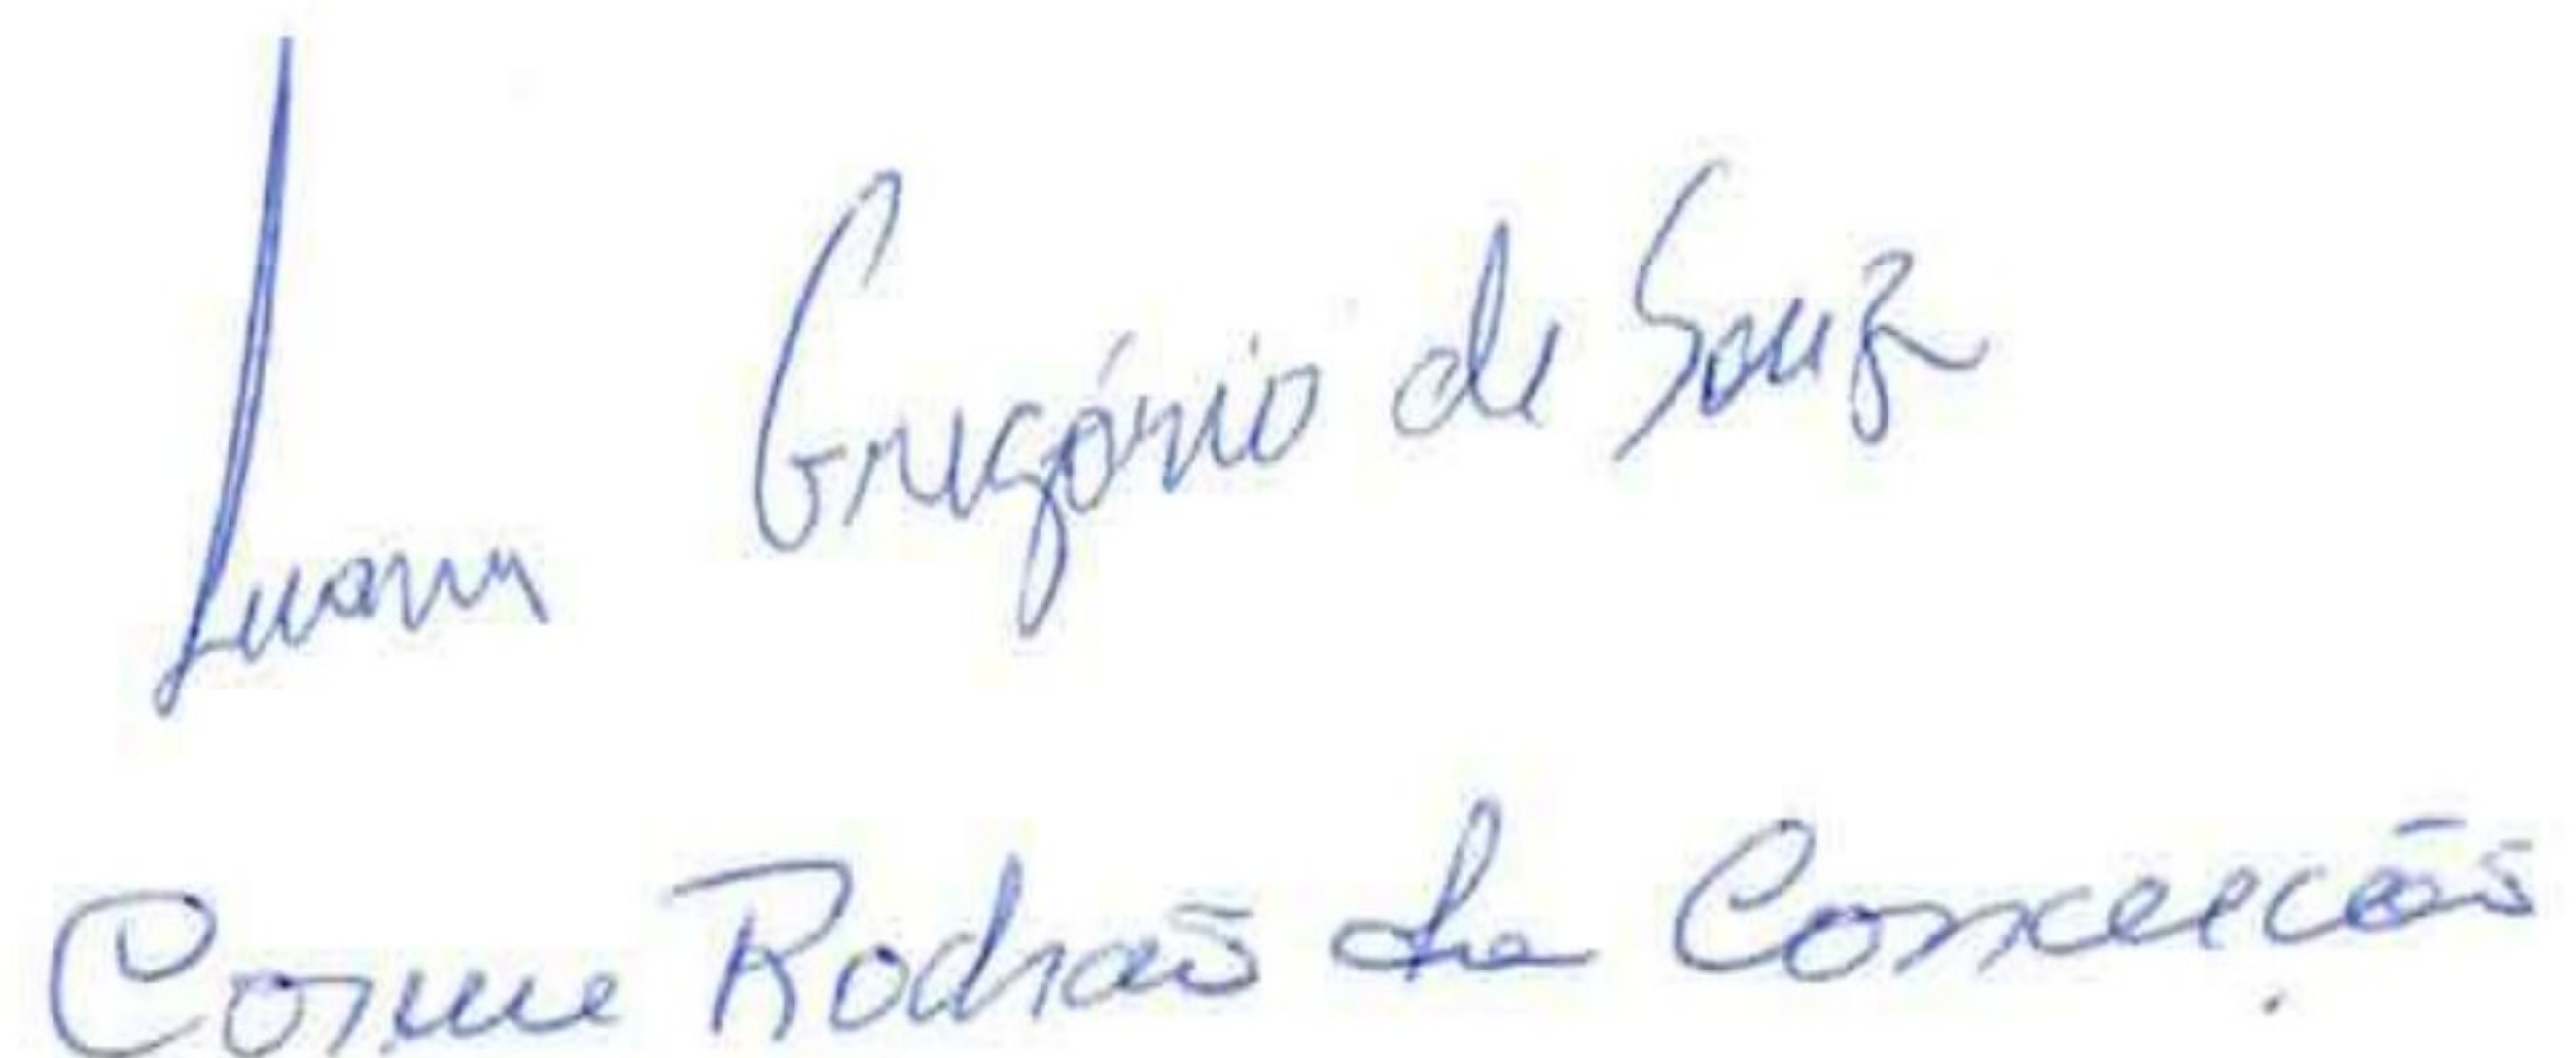 Luann Gregório de Souza
Cosme Rodrão da Conceição